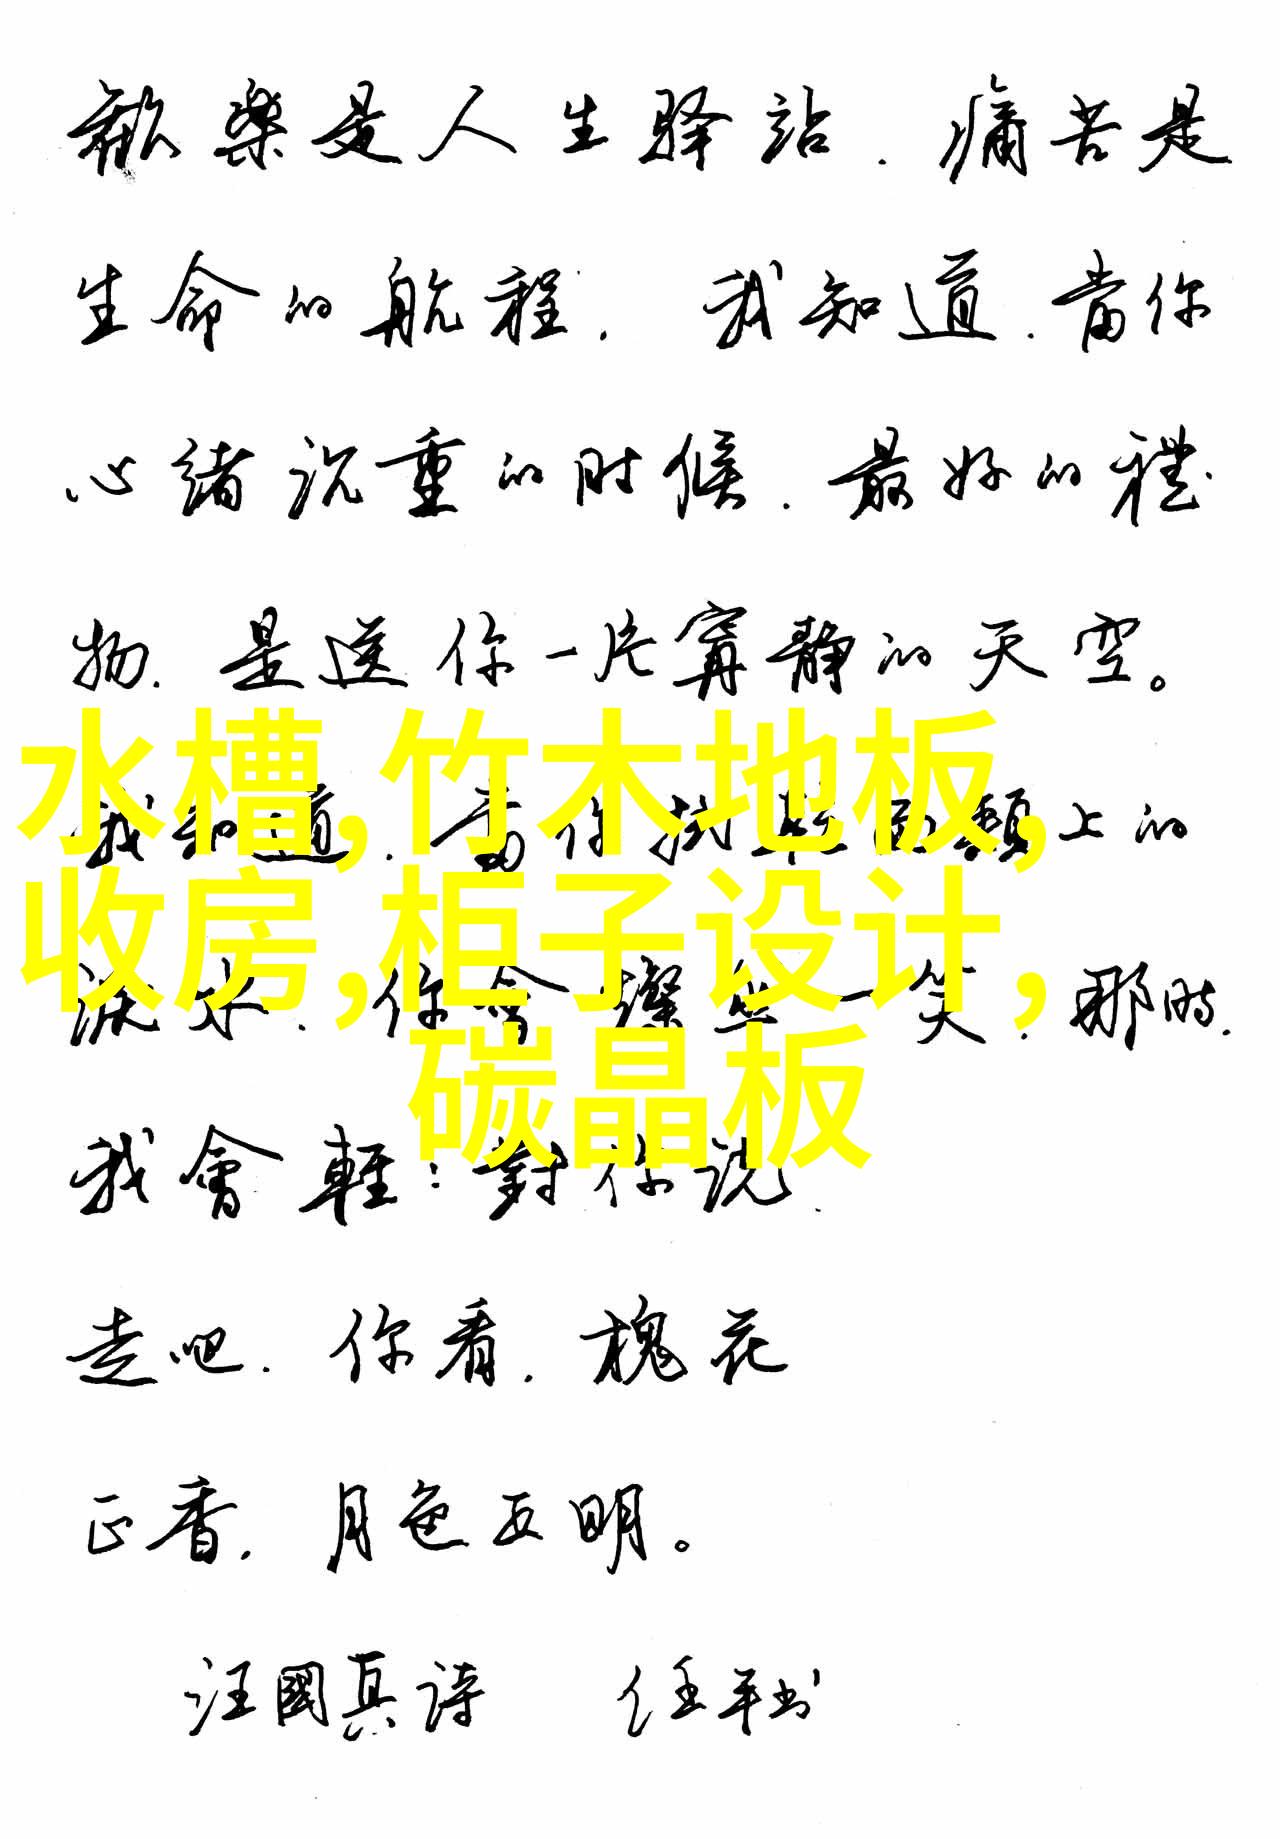 歡樂是人生驿站.痛苦是
生命的航程.我知道.當你
心緒沉重的时候.最好的禮
物.是送你一片寧靜的天空。
水槽,竹木地板,
我知道.當你拭乾面頰上的
收房,柜子设计,
淚水.你會燦然一笑.那時.
碳晶板
我會輕:對你说.
走吧.你看.槐花
正香.月色正明。
汪國真詩 任平书